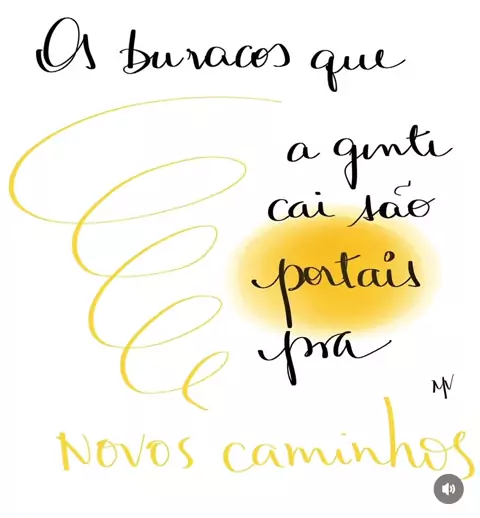 Os buracos que
a gente
cai são
portais
pra
MV
Novos caminhos